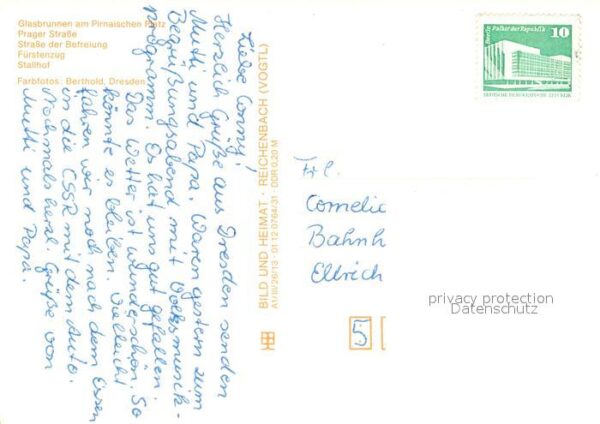 Glasbrunnen am Pirnaischen Platz
Prager Straße
Straße der Befreiung
Fürstenzug
Stallhof
Farbfotos: Berthold, Dresden
Liebe Conny!
Herzlich Grüße aus Dresden senden
Mutti und Papa. Waren gestern zum
Begrüßungsabend mit Volksmusik-
programm. Es hat uns gut gefallen.
Das Wetter ist wunderschön. So
könnte es bleiben. Vielleicht
fahren wir noch nach dem Essen
in die CSSR mit dem Auto.
Nochmals herzl. Grüße von
Mutti und Papa.
BILD UND HEIMAT · REICHENBACH (VOGTL)
A1/III/26/13 · 01 12 0764/31 · DDR 0,20 M
Berlin, Palast der Republik
10
DEUTSCHE DEMOKRATISCHE REPUBLIK
Frl.
Cornelia
Bahnh
Ellrich
5
privacy protection
Datenschutz